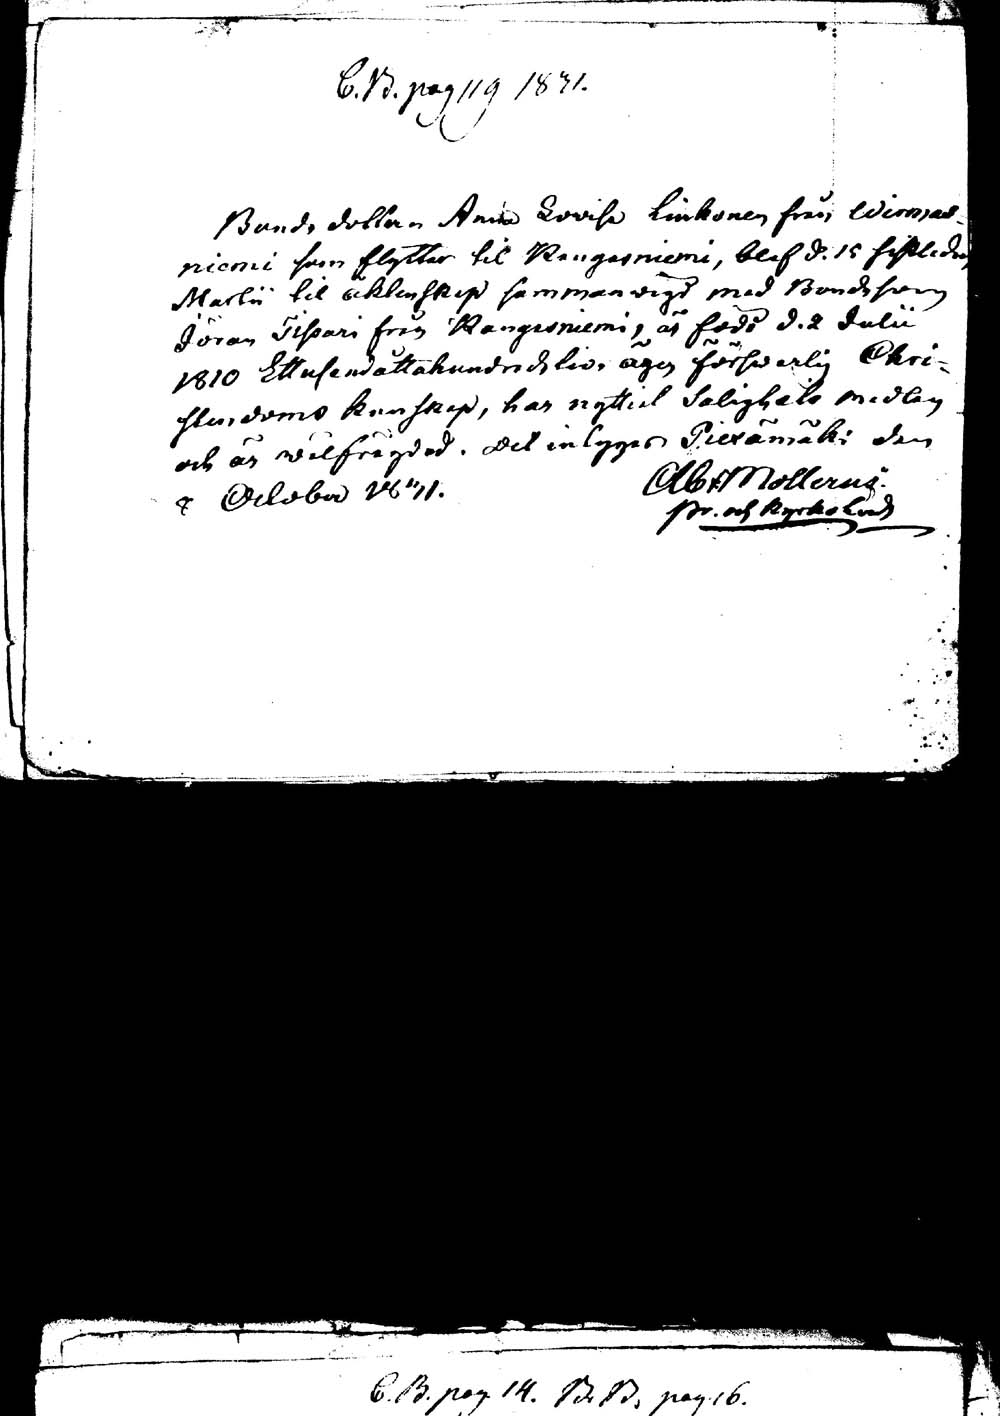 C.B. pag 119 1831.
Bonde dottren Anna Lovisa Linkonen från Wirmas-
niemi som flyttar til Kangasniemi, blef d. 15 sistledne
Martii til äktenskap sammanvigd med Bondesonen
Jöran Tissari från Kangasniemi, är född d. 2 Julii
1810 Ettusendåttahundradetio, äger försvarlig Chri-
stendoms kunskap, har nyttiat Salighets medlen
och är välfrägdad. Det intygar Piexämäki den
8 October 1831.
Abr Mollerus.
Pr. och Kyrkoherde
C.B. pag 14. B.B. pag 16.